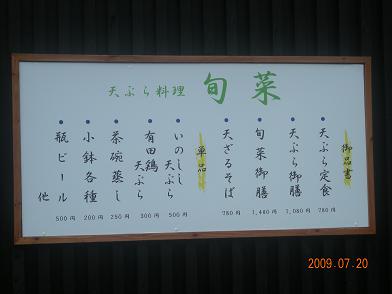 天ぷら料理 旬菜
御品書
● 天ぷら定食 780円
● 天ぷら御膳 1,080円
● 旬菜御膳 1,480円
● 天ざるそば 780円
単品
● いのしし天ぷら 500円
● 有田鶏天ぷら 300円
● 茶碗蒸し 250円
● 小鉢各種 200円
● 瓶ビール 500円
他
2009.07.20